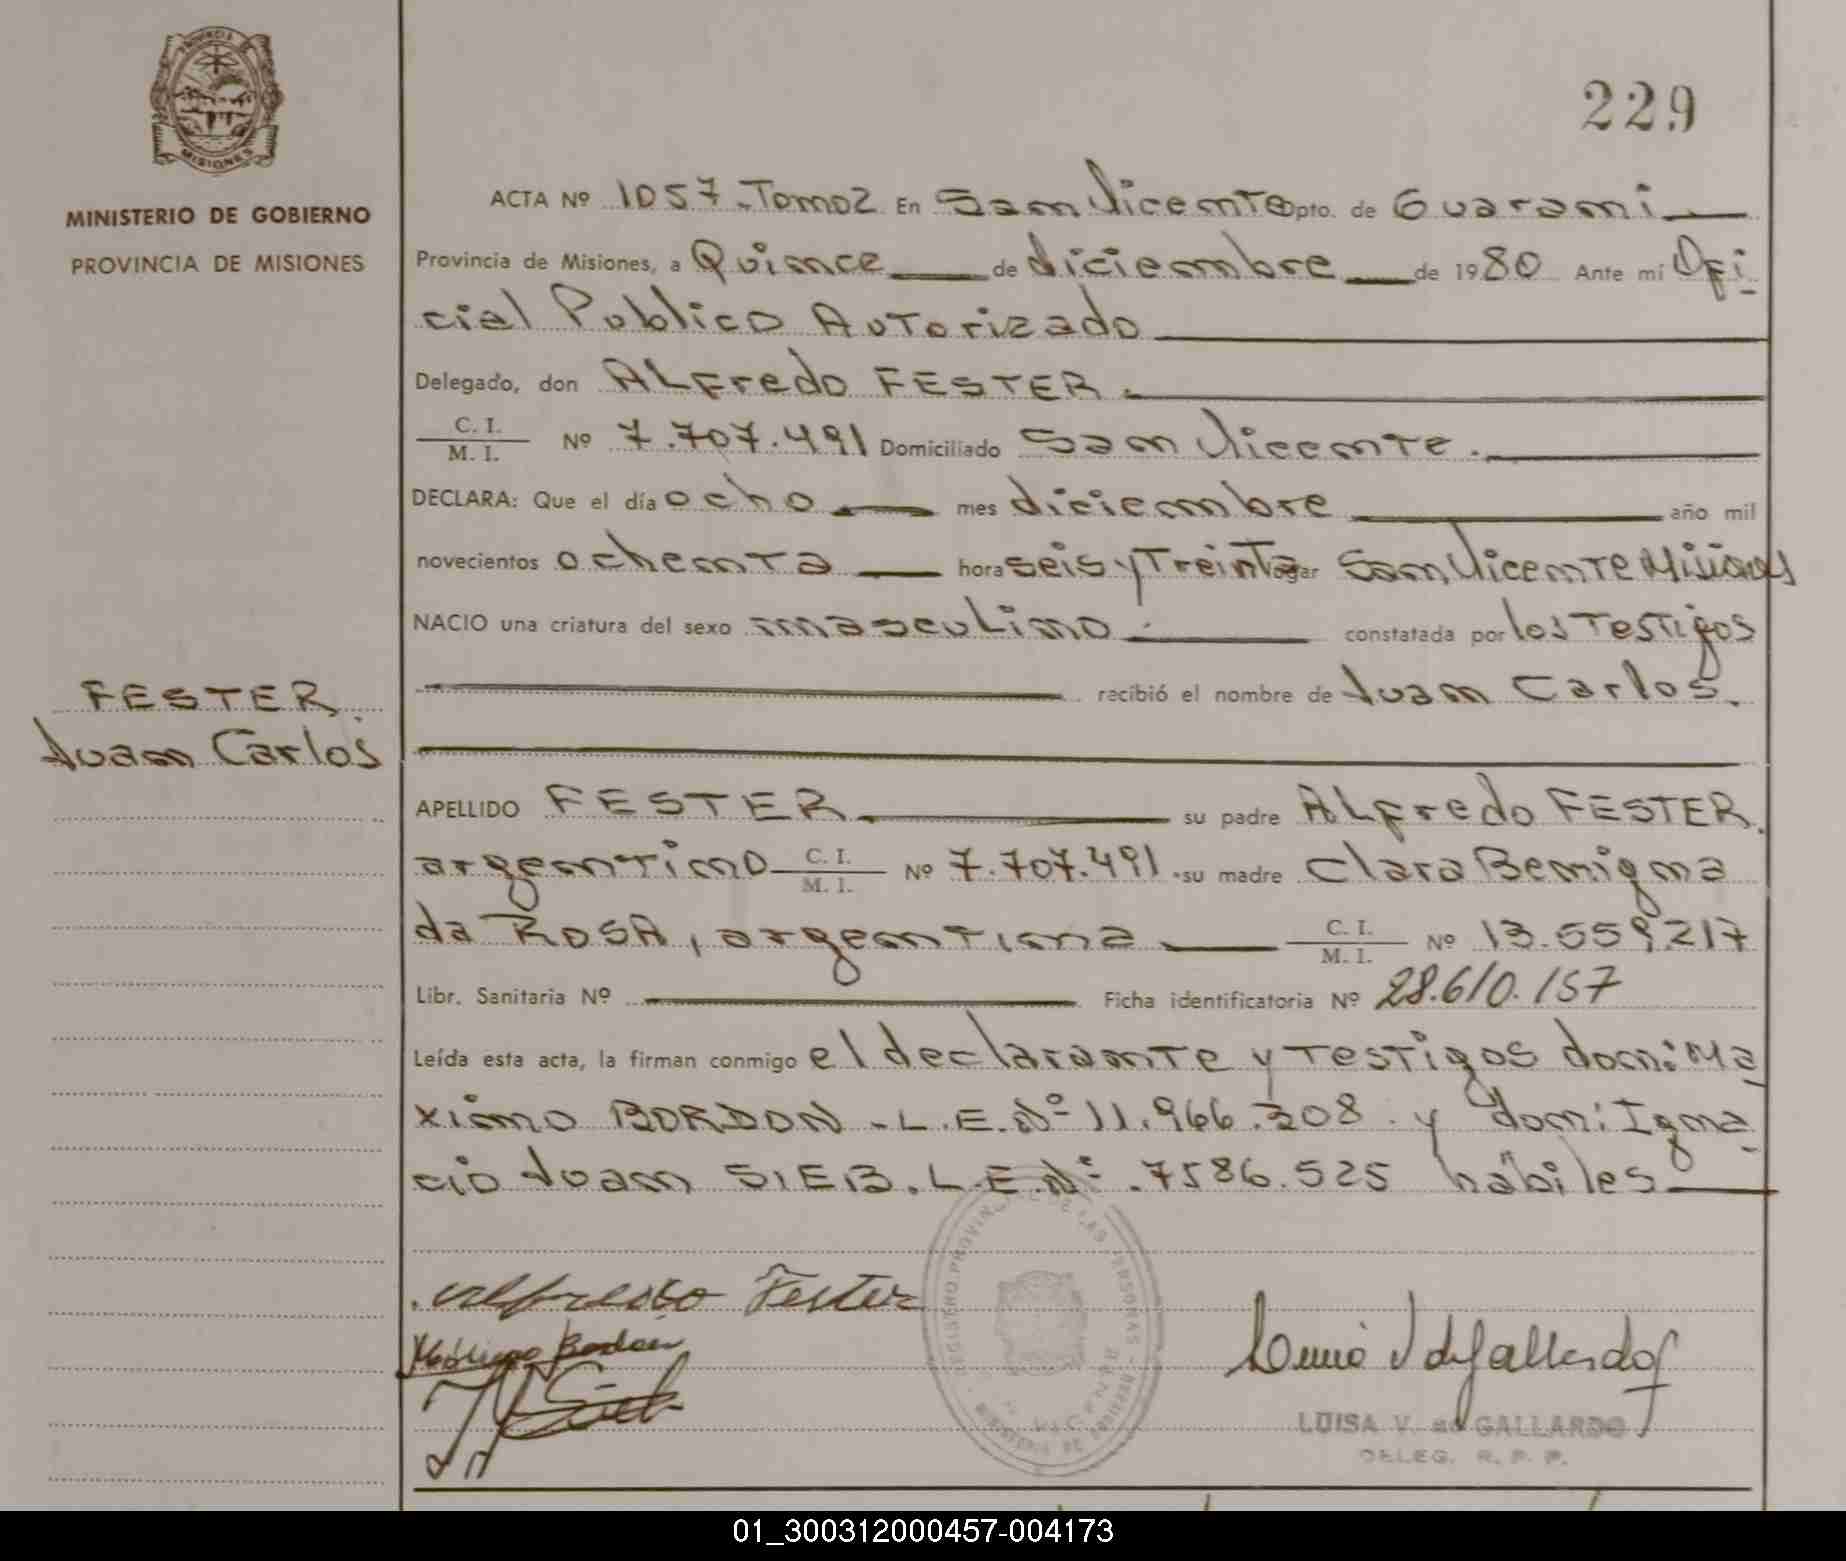 PROVINCIA DE
MISIONES
MINISTERIO DE GOBIERNO
PROVINCIA DE MISIONES
229
ACTA Nº 1057 - Tomo 2 En San Vicente Dpto. de Guarani
Provincia de Misiones, a Quince de diciembre de 1980 Ante mí Ofi-
cial Publico Autorizado
Delegado, don ALFredo FESTER.
C. I. / M. I. Nº 7.707.491 Domiciliado San Vicente.
DECLARA: Que el día ocho mes diciembre año mil
novecientos ochenta hora seis y Treinta lugar San Vicente Misiones
NACIO una criatura del sexo masculino constatada por los Testigos
recibió el nombre de Juan Carlos.
FESTER.
Juan Carlos
APELLIDO FESTER su padre ALFredo FESTER.
argentino C. I. / M. I. Nº 7.707.491 su madre Clara Benigna
da ROSA, argentina C. I. / M. I. Nº 13.559.217
Libr. Sanitaria Nº Ficha identificatoria Nº 28.610.157
Leída esta acta, la firman conmigo el declarante y Testigos don: Ma
ximo BORDON - L.E.Nº 11.966.308 y don: Igna-
cio Juan SIEB. L.E.Nº 7586.525 hábiles
Alfredo Fester
REGISTRO PROVINCIAL DE LAS PERSONAS
MINISTERIO DE GOBIERNO
LUISA V. de GALLARDO
DELEG. R. P. P.
01_300312000457-004173